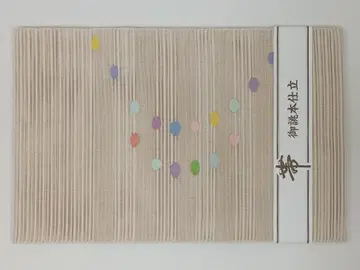 御誂本仕立
帯